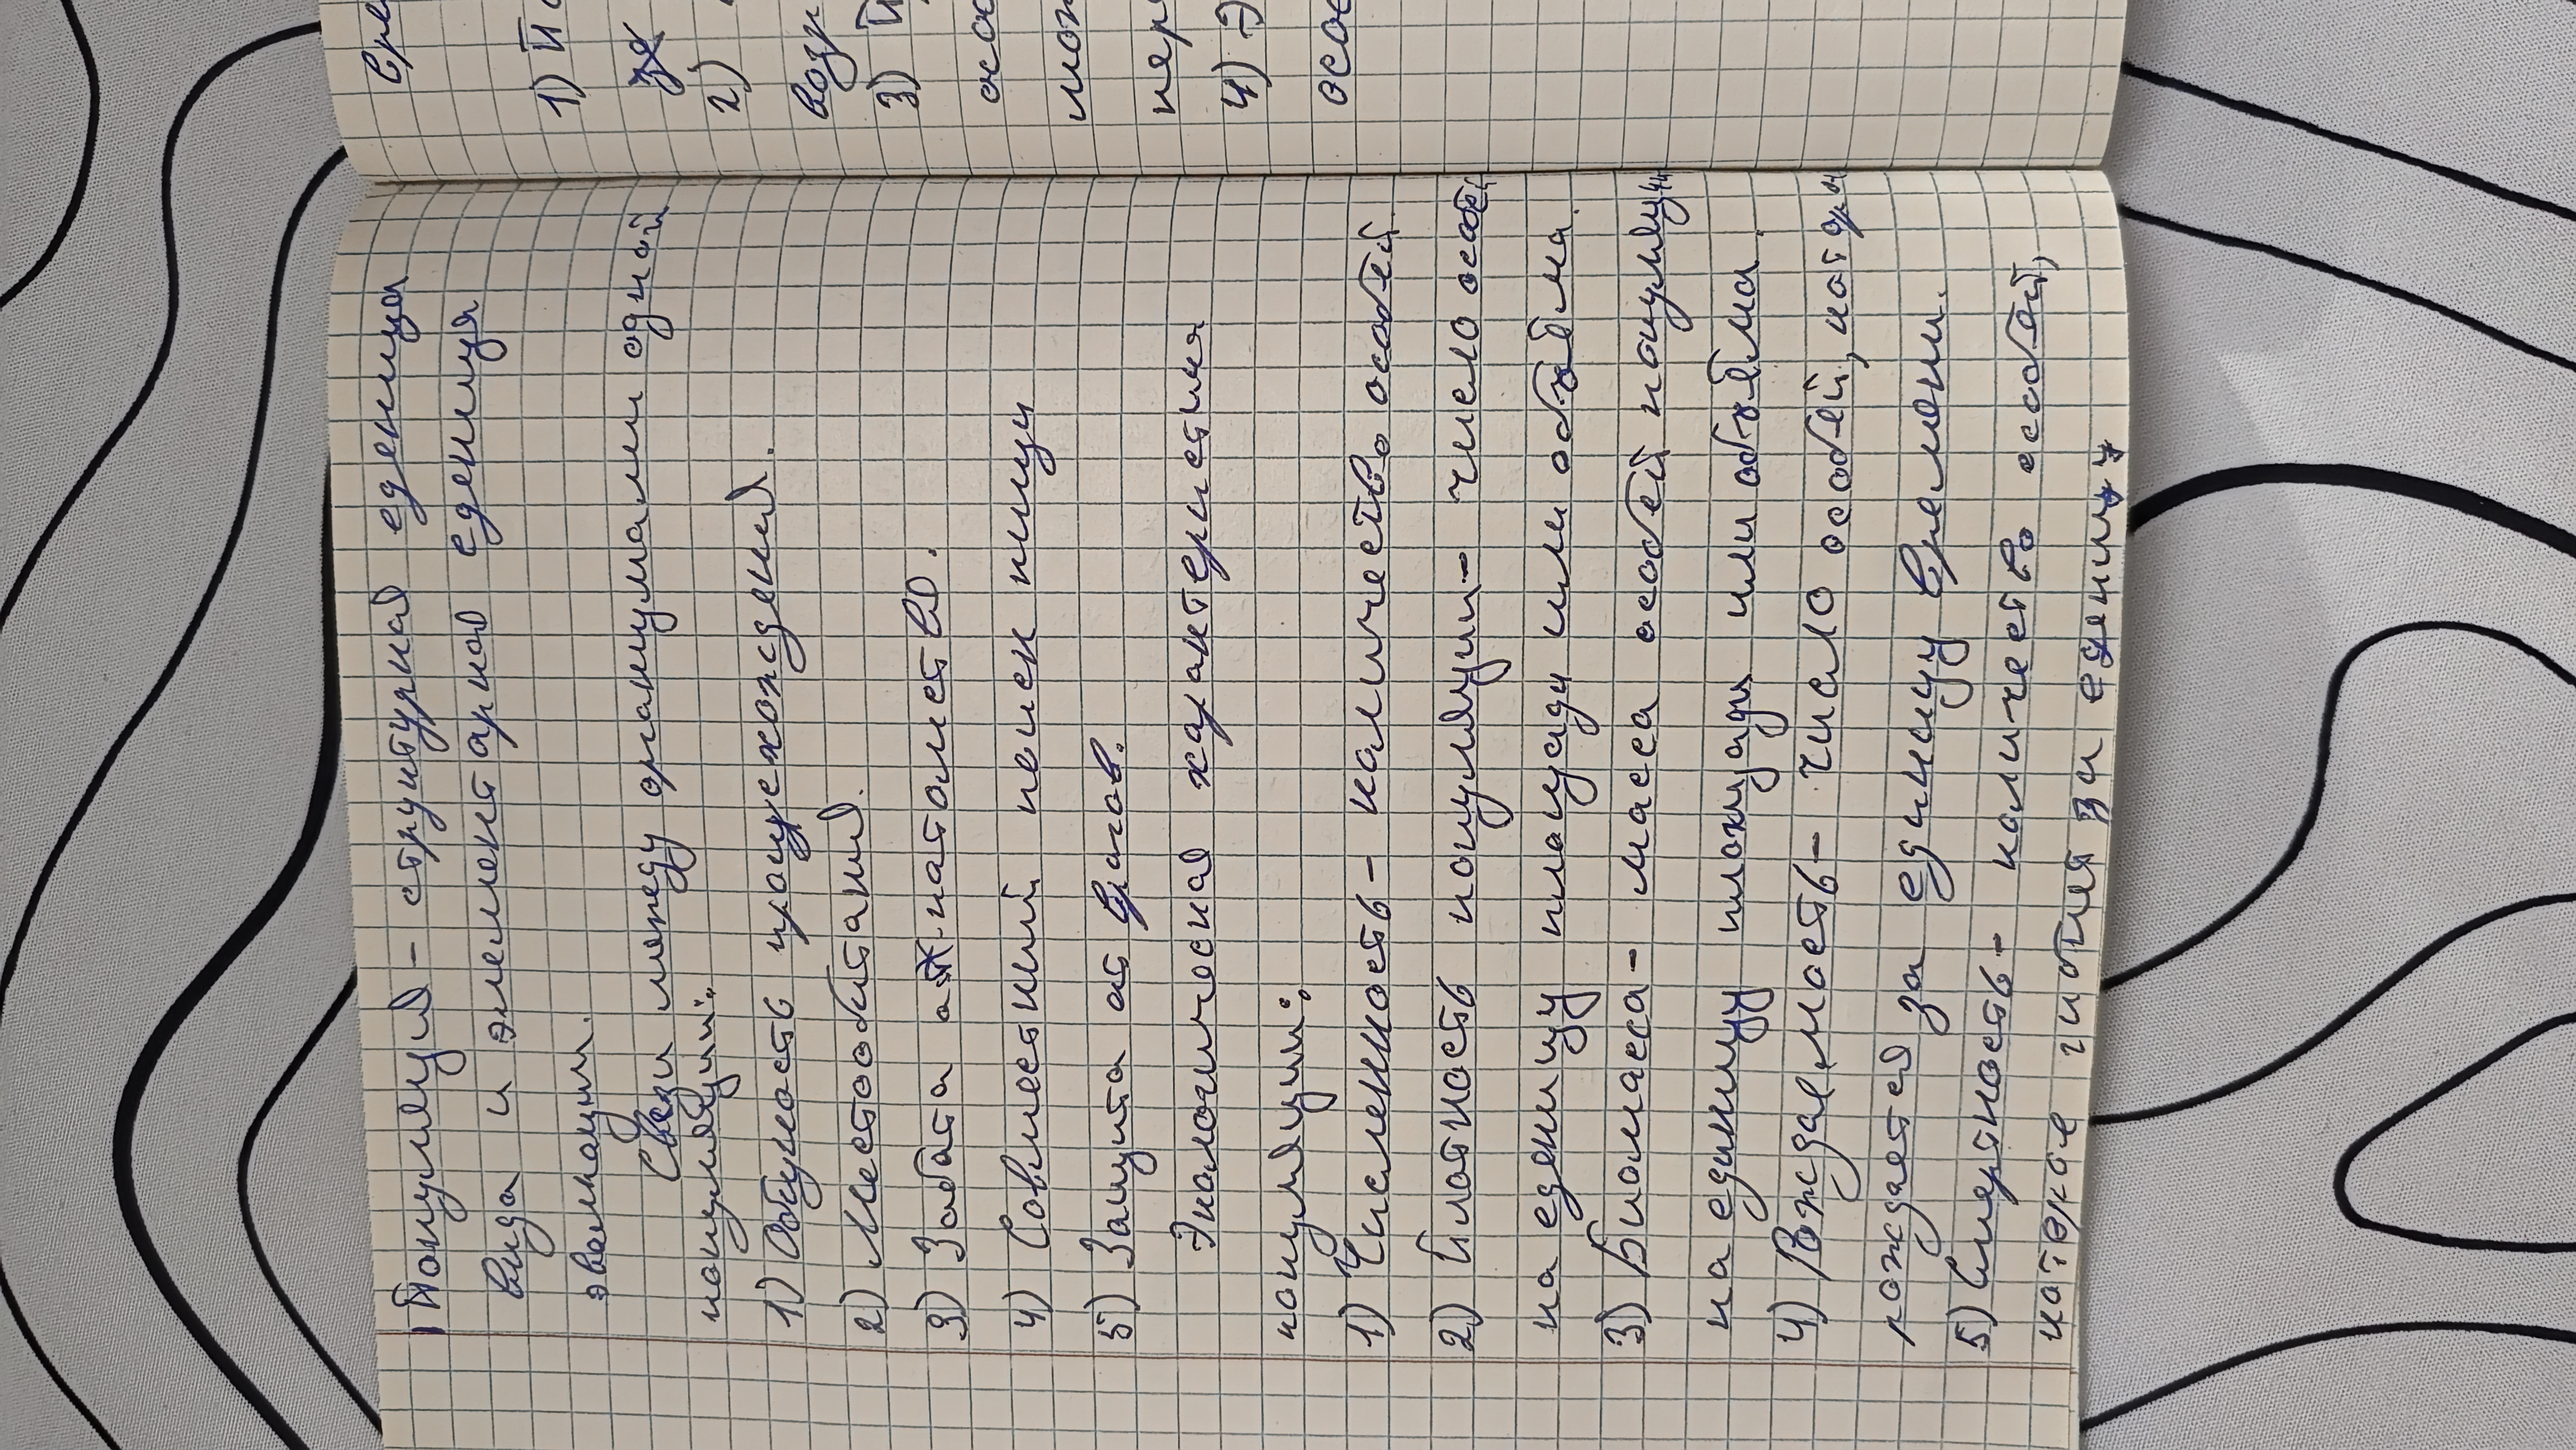 Популяция - структурная еденица
вида и элементарная еденица
эволюции.
Связи между организмами одной
популяции:
1) Общность процехождения.
2) Местообитания.
3) Забота о потомстве.
4) Совместный поиск пищи
5) Защита от врагов.
Экологическая характеристика
популяции:
1) Численность - количество особей.
2) Плотность популяции - число особей
на еденицу площади или объёма.
3) Биомасса - масса особей популяции
на единицу площади или объёма.
4) Рождаемость - число особей,
рождается за единицу времени.
5) Смертность - количество особей,
которое гибнет за еденицу
Сре
1) П
2)
возр
3) П
осо
мож
пер
4) Э
осо